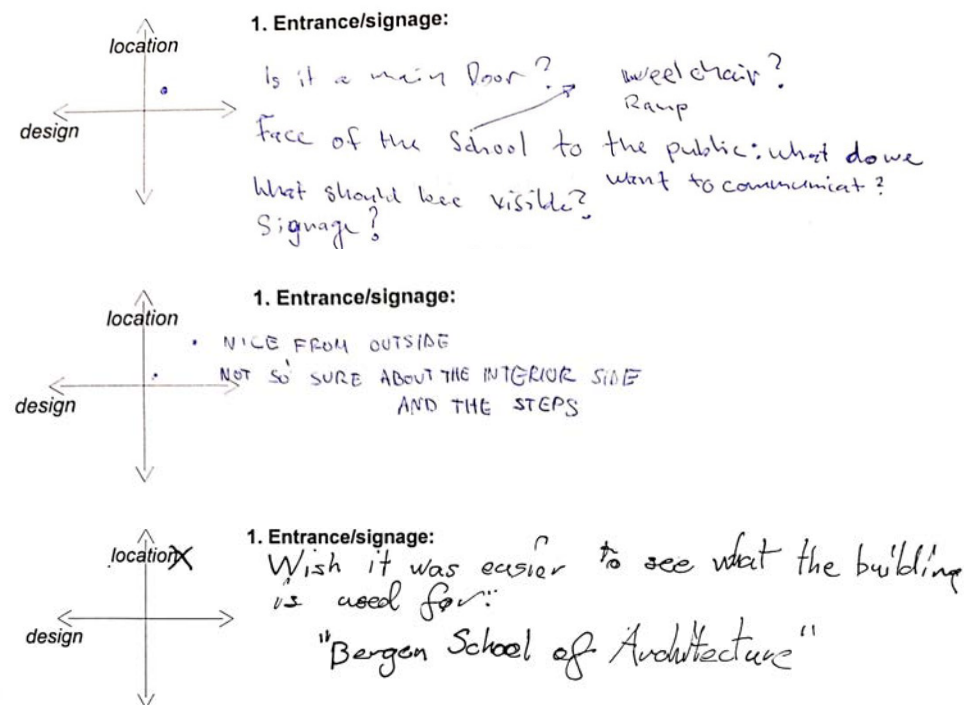 1. Entrance/signage:
location
design
Is it a main Door? weelchair?
Ramp
Face of the School to the public: what do we
want to communicat?
What should bee visible?
Signage?
1. Entrance/signage:
location
design
• NICE FROM OUTSIDE
NOT SO SURE ABOUT THE INTERIOR SIDE
AND THE STEPS
1. Entrance/signage:
location
design
Wish it was easier to see what the building
is used for:
"Bergen School of Architecture"